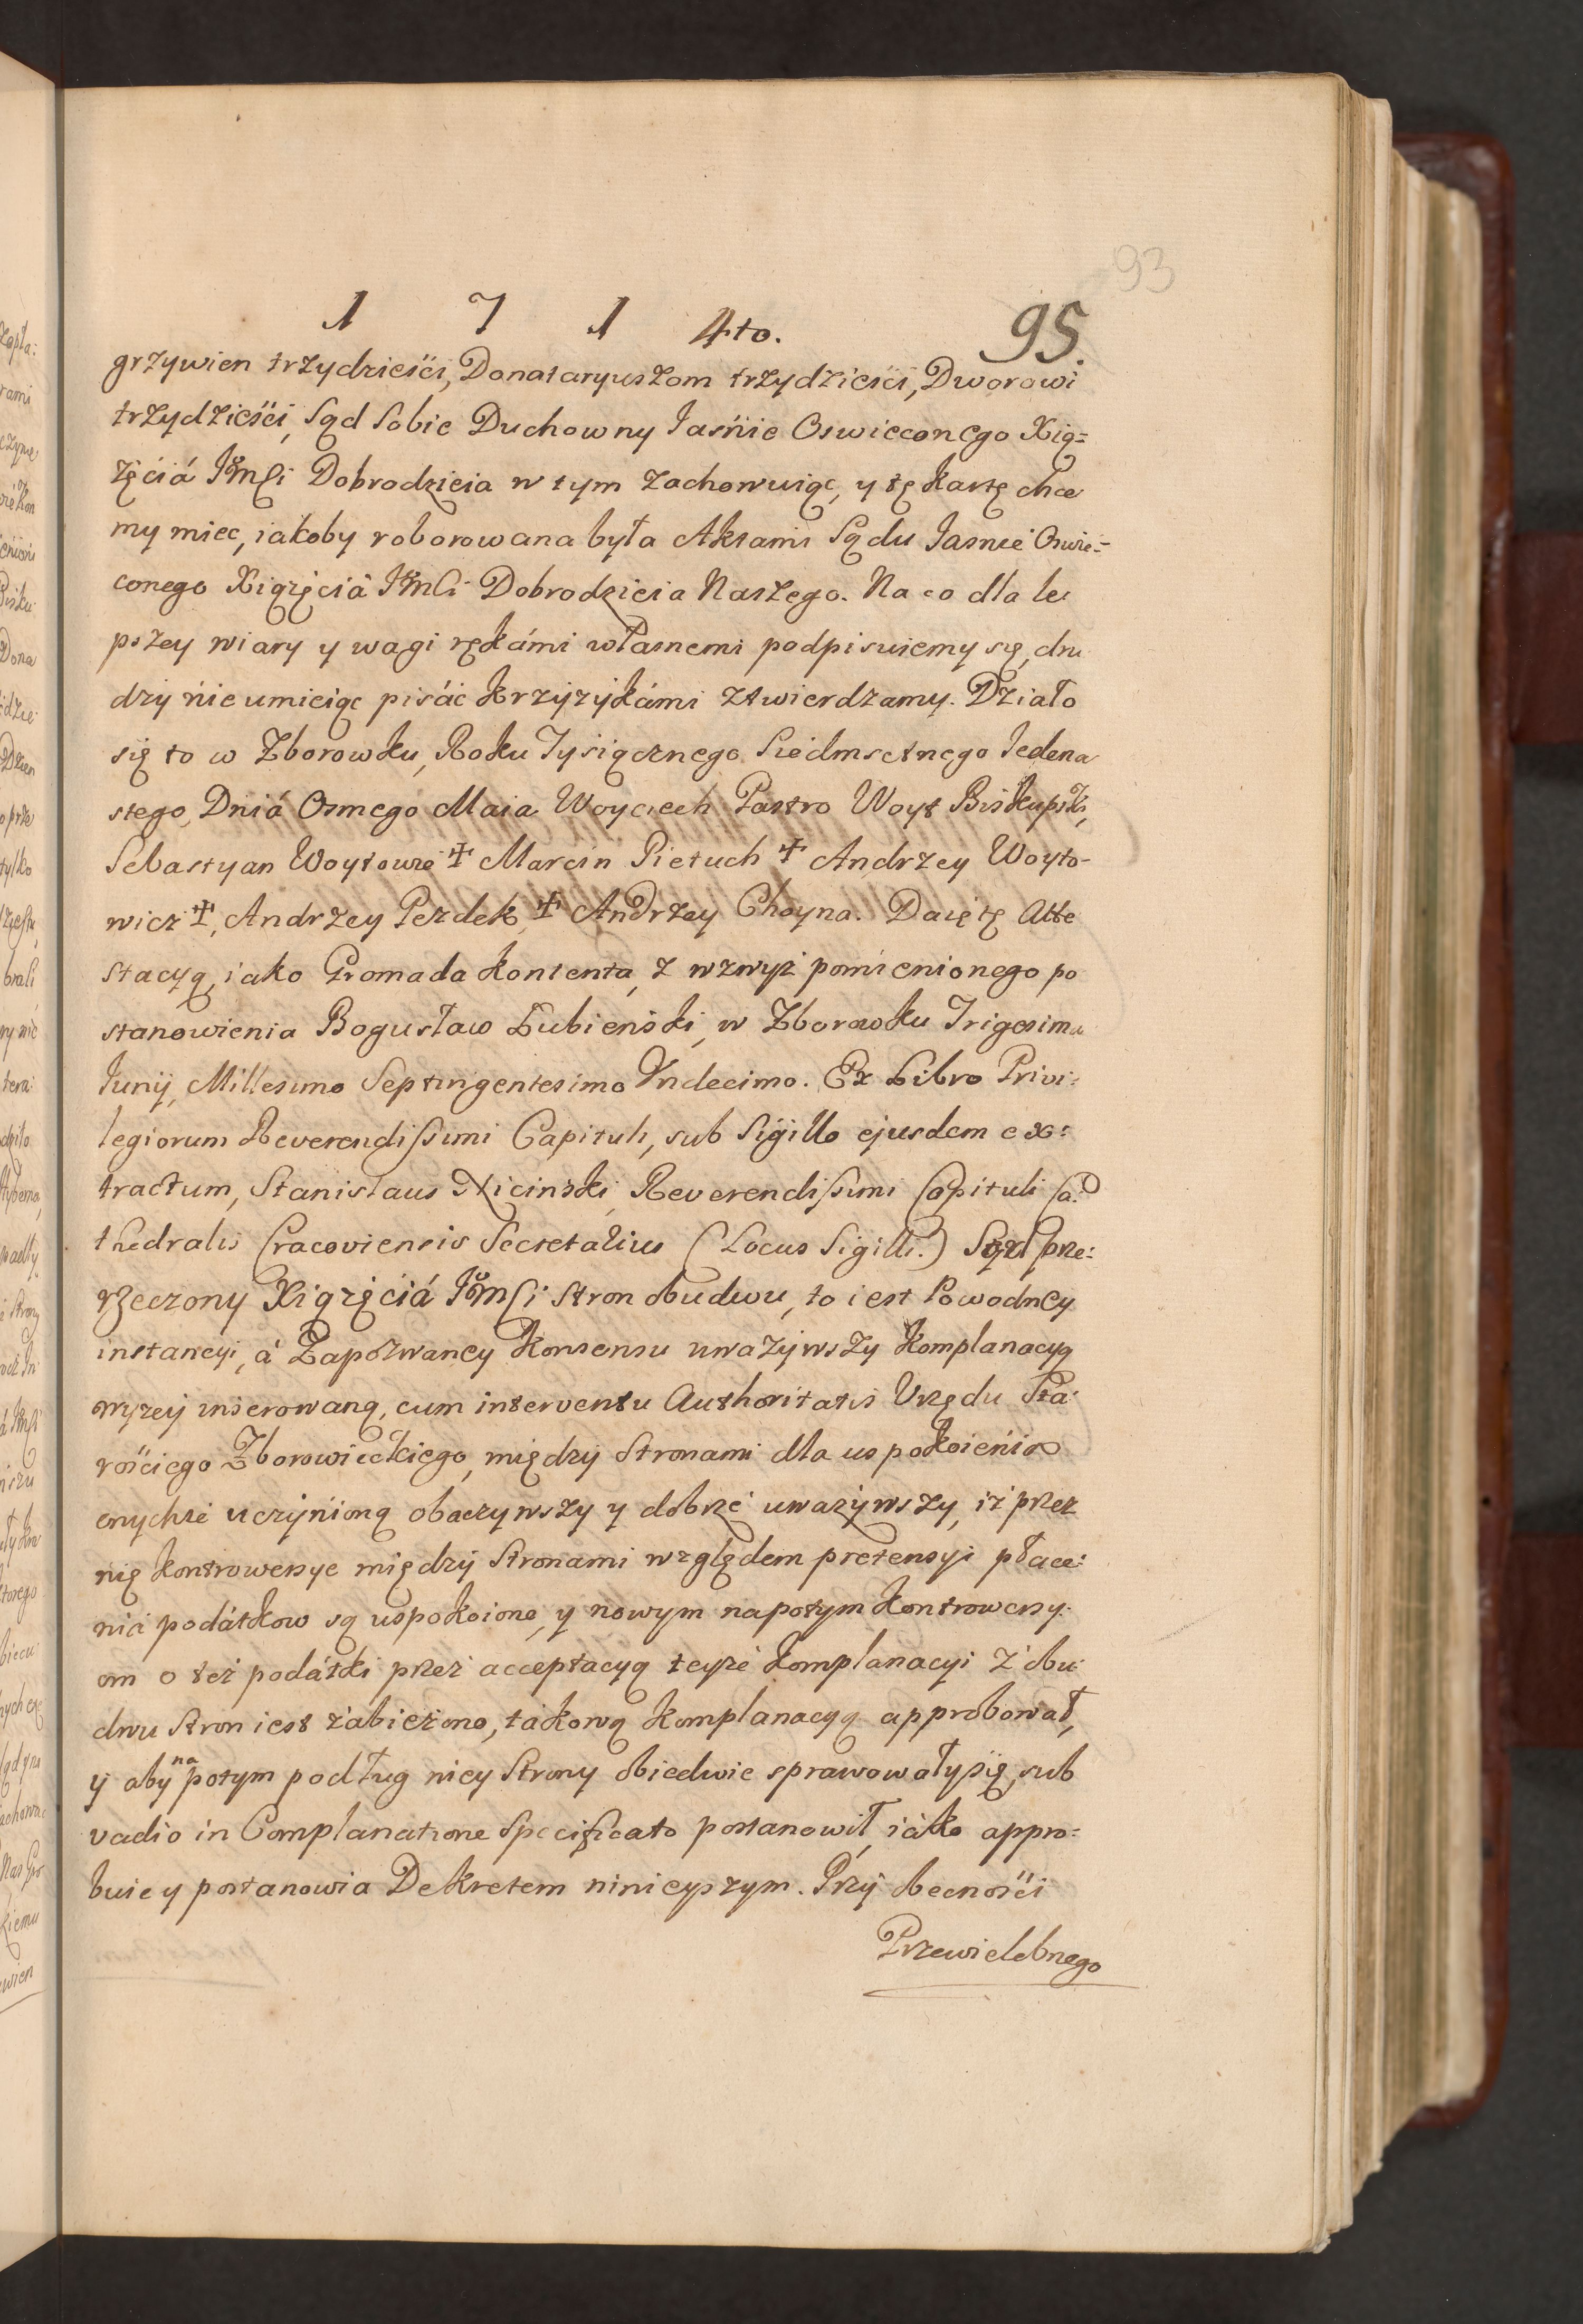 93
1 7 1 4to. 95.
grzywien trzydzieśći, Donataryuszom trzydzieśći, Dworowi
trzydzieśći, Sąd Sobie Duchowny Jaśnie Oswieconego Xią=
żęćiá JMści Dobrodzieia w tym zachowuiąc, y tę kartę chce
my miec, iakoby roborowana była Aktami Sądu Jasnie Oswie=
conego Xiążęciá JMści Dobrodzieia Naszego. Na co dla le
pszey wiary y wagi rękámi własnemi podpisuiemy się, dru
dzy nie umieiąc pisáć krzyżykámi ztwierdzamy. Działo
się to w Zborowku, Roku Tysiącznego Siedmsetnego Jedena
stego, Dniá Osmego Maia Woyciech Pastro Woyt Biskupski,
Sebastyan Woytowic ☩ Marcin Pietuch ☩ Andrzey Woyto-
wicz ☩, Andrzey Pezdek, ☩ Andrzey Choyna. Daię tę Atte
stacyą, iako Gromada kontenta, z wzwyż pomienionego po
stanowienia Bogusław Łubieński, w Zborowku Trigesima
Junij, Millesimo Septingentesimo Vndecimo. Ex Libro Privi:
legiorum Reverendissimi Capituli, sub Sigillo ejusdem ex:
tractum, Stanislaus Nicinski, Reverendissimi Capituli Ca:
thedralis Cracoviensis Secretarius (Locus Sigilli.) Sąd prze:
rzeczony Xiążęćiá JMści Stron obudwu, to iest Powodney
instancyi, á Zapozwaney konsensu uważywszy komplanacyą
wyżey inserowaną, cum interventu Authoritatis Vrzędu Sta:
rośćiego Zborowieckiego, między Stronami dla uspokoienia
onychże uczynioną obaczywszy y dobrze uważywszy, iż przez
nię kontrowersye między Stronami względem pretensyi płace:
nia podátkow są uspokoione, y nowym napotym kontrowersy:
om o też podátki przez acceptacyą teyże komplanacyi z obu:
dwu Stron iest zabieżono, takową komplanacyą approbował,
y aby na potym podług niey Strony obiedwie sprawowały się, sub
vadio in Complanatione Specificato postanowił, iáko appro:
buie y postanowia Dekretem ninieyszym. Przy obecnośći
Przewielebnego